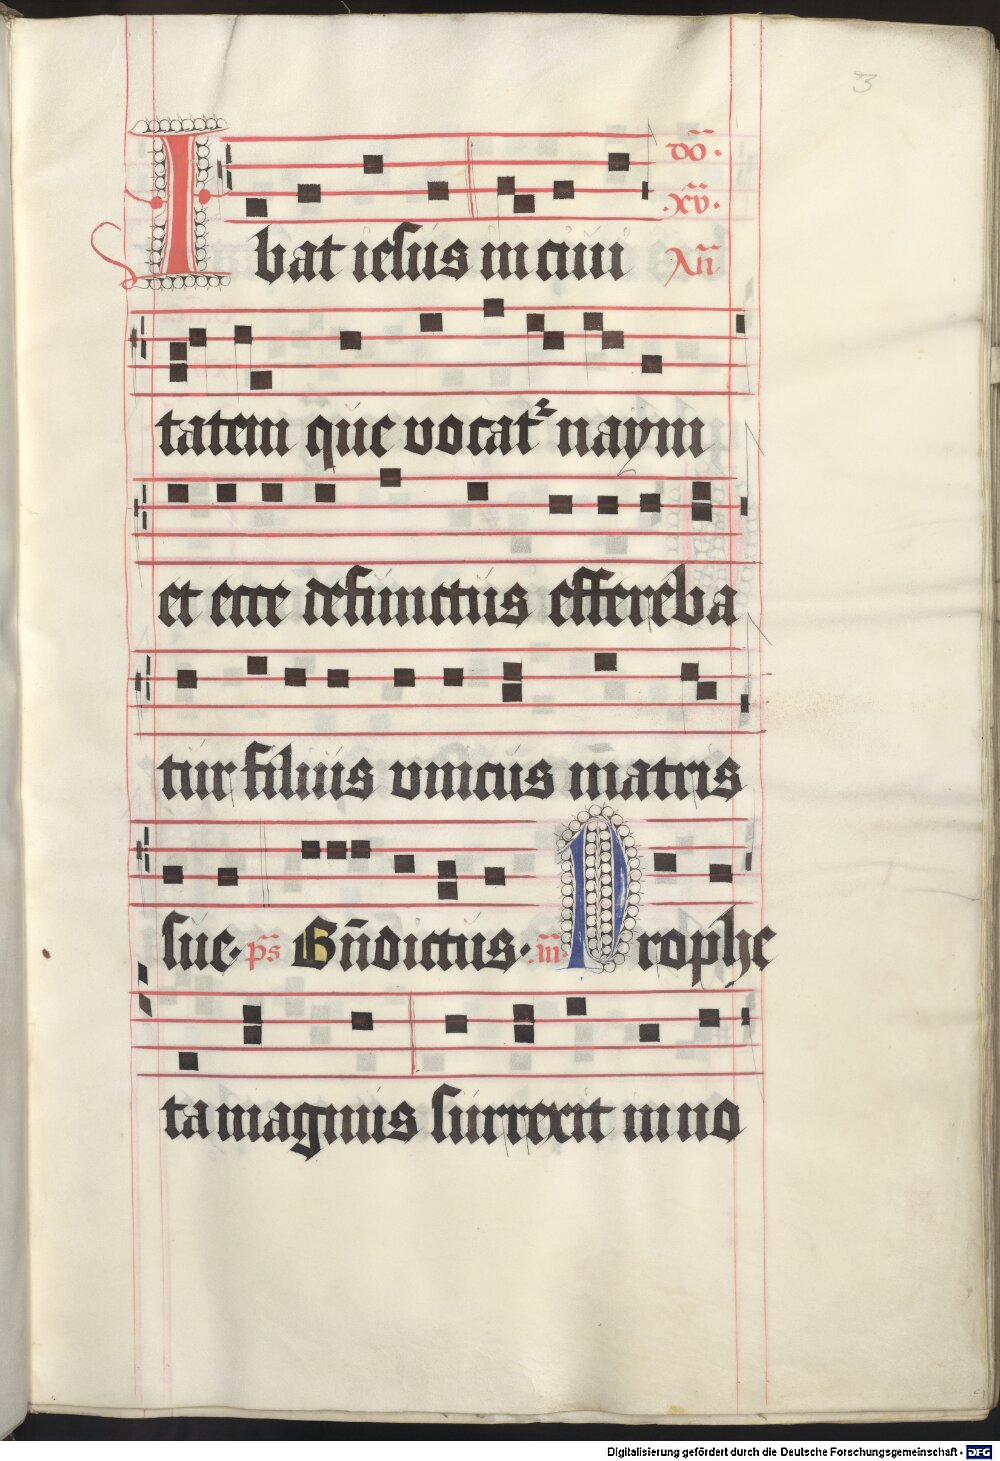 3
Ibat iesus in ciui
dō̃.
.xv̄.
Añ
tatem que vocatᷣ naym
et ecce defunctus effereba
tur filius vnicus m̄atris
sue. p̄s B̄ndictus. .m̄. Prophe
ta magnus surrexit in no
Digitalisierung gefördert durch die Deutsche Forschungsgemeinschaft - DFG